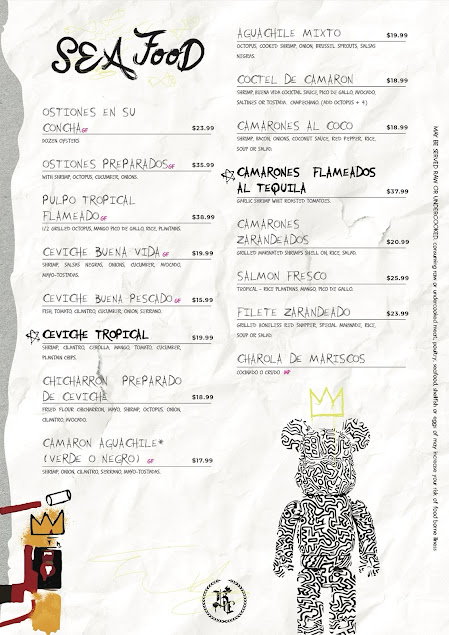 SEA FOOD
OSTIONES EN SU
CONCHA GF $23.99
DOZEN OYSTERS
OSTIONES PREPARADOS GF $35.99
WITH SHRIMP, OCTOPUS, CUCUMBER, ONIONS.
PULPO TROPICAL
FLAMEADO GF $38.99
1/2 GRILLED OCTOPUS, MANGO PICO DE GALLO, RICE, PLANTAINS.
CEVICHE BUENA VIDA GF $19.99
SHRIMP, SALSAS NEGRAS, ONIONS, CUCUMBER, AVOCADO,
MAYO-TOSTADAS.
CEVICHE BUENA PESCADO GF $15.99
FISH, TOMATO, CILANTRO, CUCUMBER, ONION, SERRANO.
CEVICHE TROPICAL $19.99
SHRIMP, CILANTRO, CEBOLLA, MANGO, TOMATO, CUCUMBER,
PLANTAIN CHIPS.
CHICHARRON PREPARADO
DE CEVICHE $18.99
FRIED FLOUR CHICHARRON, MAYO, SHRIMP, OCTOPUS, ONION,
CILANTRO, AVOCADO.
CAMARON AGUACHILE*
(VERDE O NEGRO) GF $17.99
SHRIMP, ONION, CILANTRO, SERRANO, MAYO-TOSTADAS.
AGUACHILE MIXTO $19.99
OCTOPUS, COOKED SHRIMP, ONION, BRUSSEL SPROUTS, SALSAS
NEGRAS.
COCTEL DE CAMARON $18.99
SHRIMP, BUENA VIDA COCKTAIL SAUCE, PICO DE GALLO, AVOCADO,
SALTINES OR TOSTADA. CAMPECHANO. (ADD OCTOPUS + 4)
CAMARONES AL COCO $18.99
SHRIMP, BACON, ONIONS, COCONUT SAUCE, RED PEPPER, RICE,
SOUP OR SALAD.
CAMARONES FLAMEADOS
AL TEQUILA $37.99
GARLIC SHRIMP WHIT ROASTED TOMATOES.
CAMARONES
ZARANDEADOS $20.99
GRILLED MARINATED SHRIMPS SHELL ON, RICE, SALAD.
SALMON FRESCO $25.99
TROPICAL - RICE PLANTAINS, MANGO PICO, OR SALAD.
FILETE ZARANDEADO $23.99
GRILLED BONELESS RED SNAPPER, SPECIAL MARINADE, RICE,
SOUP OR SALAD.
CHAROLA DE MARISCOS
COCINADO O CRUDO MP
MAY BE SERVED RAW OR UNDERCOOKED. consuming raw or undercooked meat, poultry, seafood, shellfish or eggs of may increase your risk of food borne illness